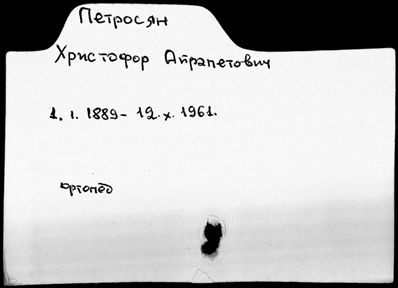 Петросян
Христофор Айрапетович
1. I. 1889 - 12. X. 1961.
ортопед